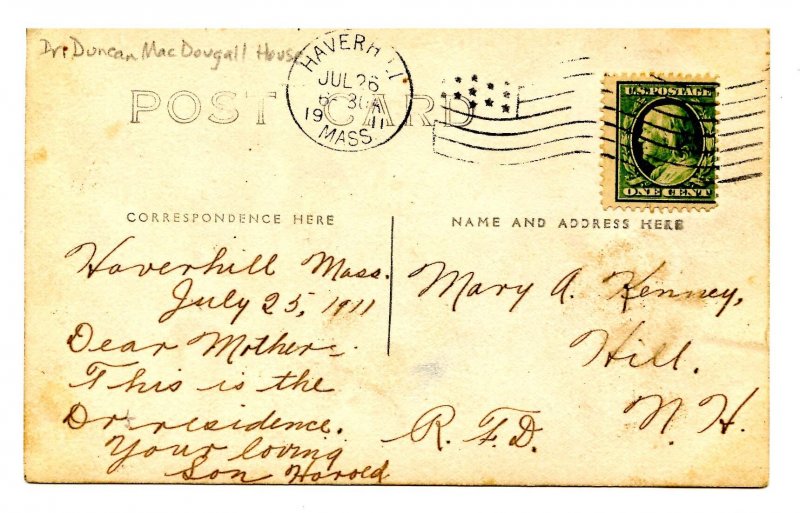 Dr. Duncan MacDougall House
HAVERHILL
JUL 26
19 11
MASS.
POST CARD
U.S. POSTAGE
ONE CENT
CORRESPONDENCE HERE
NAME AND ADDRESS HERE
Haverhill Mass.
July 25, 1911
Dear Mother:-
This is the
Dr. residence.
Your loving
Son Harold
Mary A. Kenney,
Hill.
R. F. D. N. H.